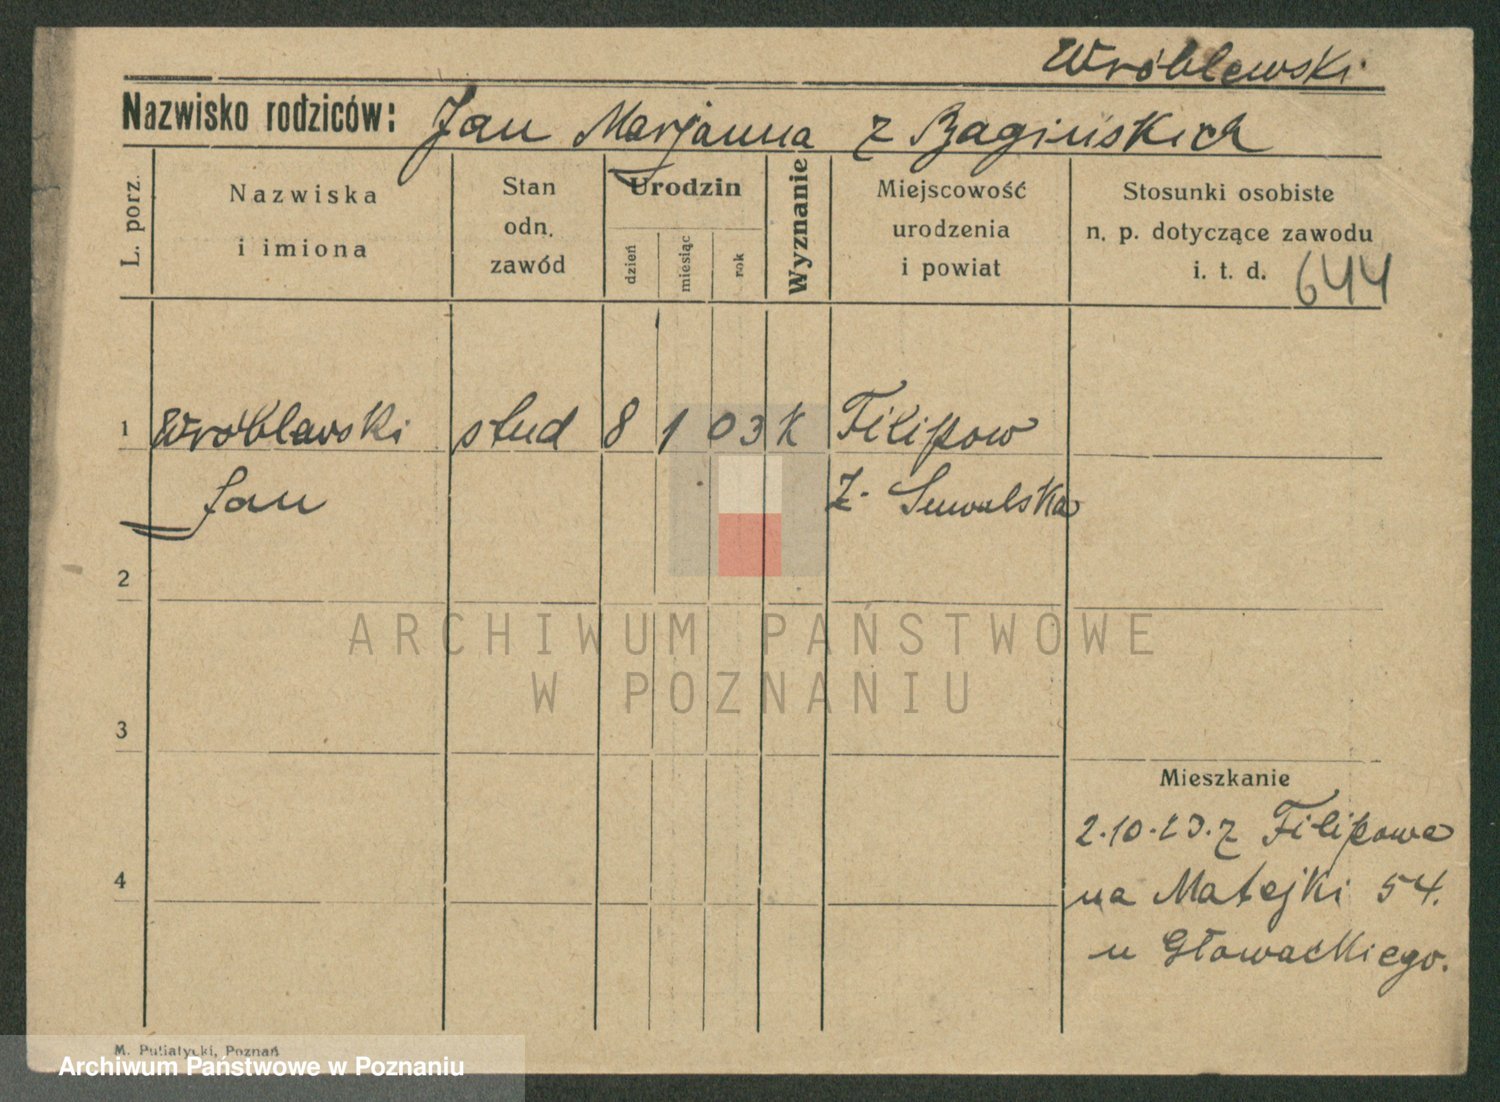 Wróblewski
Nazwisko rodziców: Jan Marjanna z Bagińskich
L. porz.
Nazwiska
i imiona
Stan
odn.
zawód
Urodzin
dzień
miesiąc
rok
Wyznanie
Miejscowość
urodzenia
i powiat
Stosunki osobiste
n. p. dotyczące zawodu
i. t. d. 644
1 Wróblewski stud 8 1 03 K Filipow
Jan Z. Suwalska
2
ARCHIWUM PAŃSTWOWE
W POZNANIU
3
Mieszkanie
2.10.23. z Filipowa
4 na Matejki 54.
u Głowackiego.
M. Putiatycki, Poznań
Archiwum Państwowe w Poznaniu